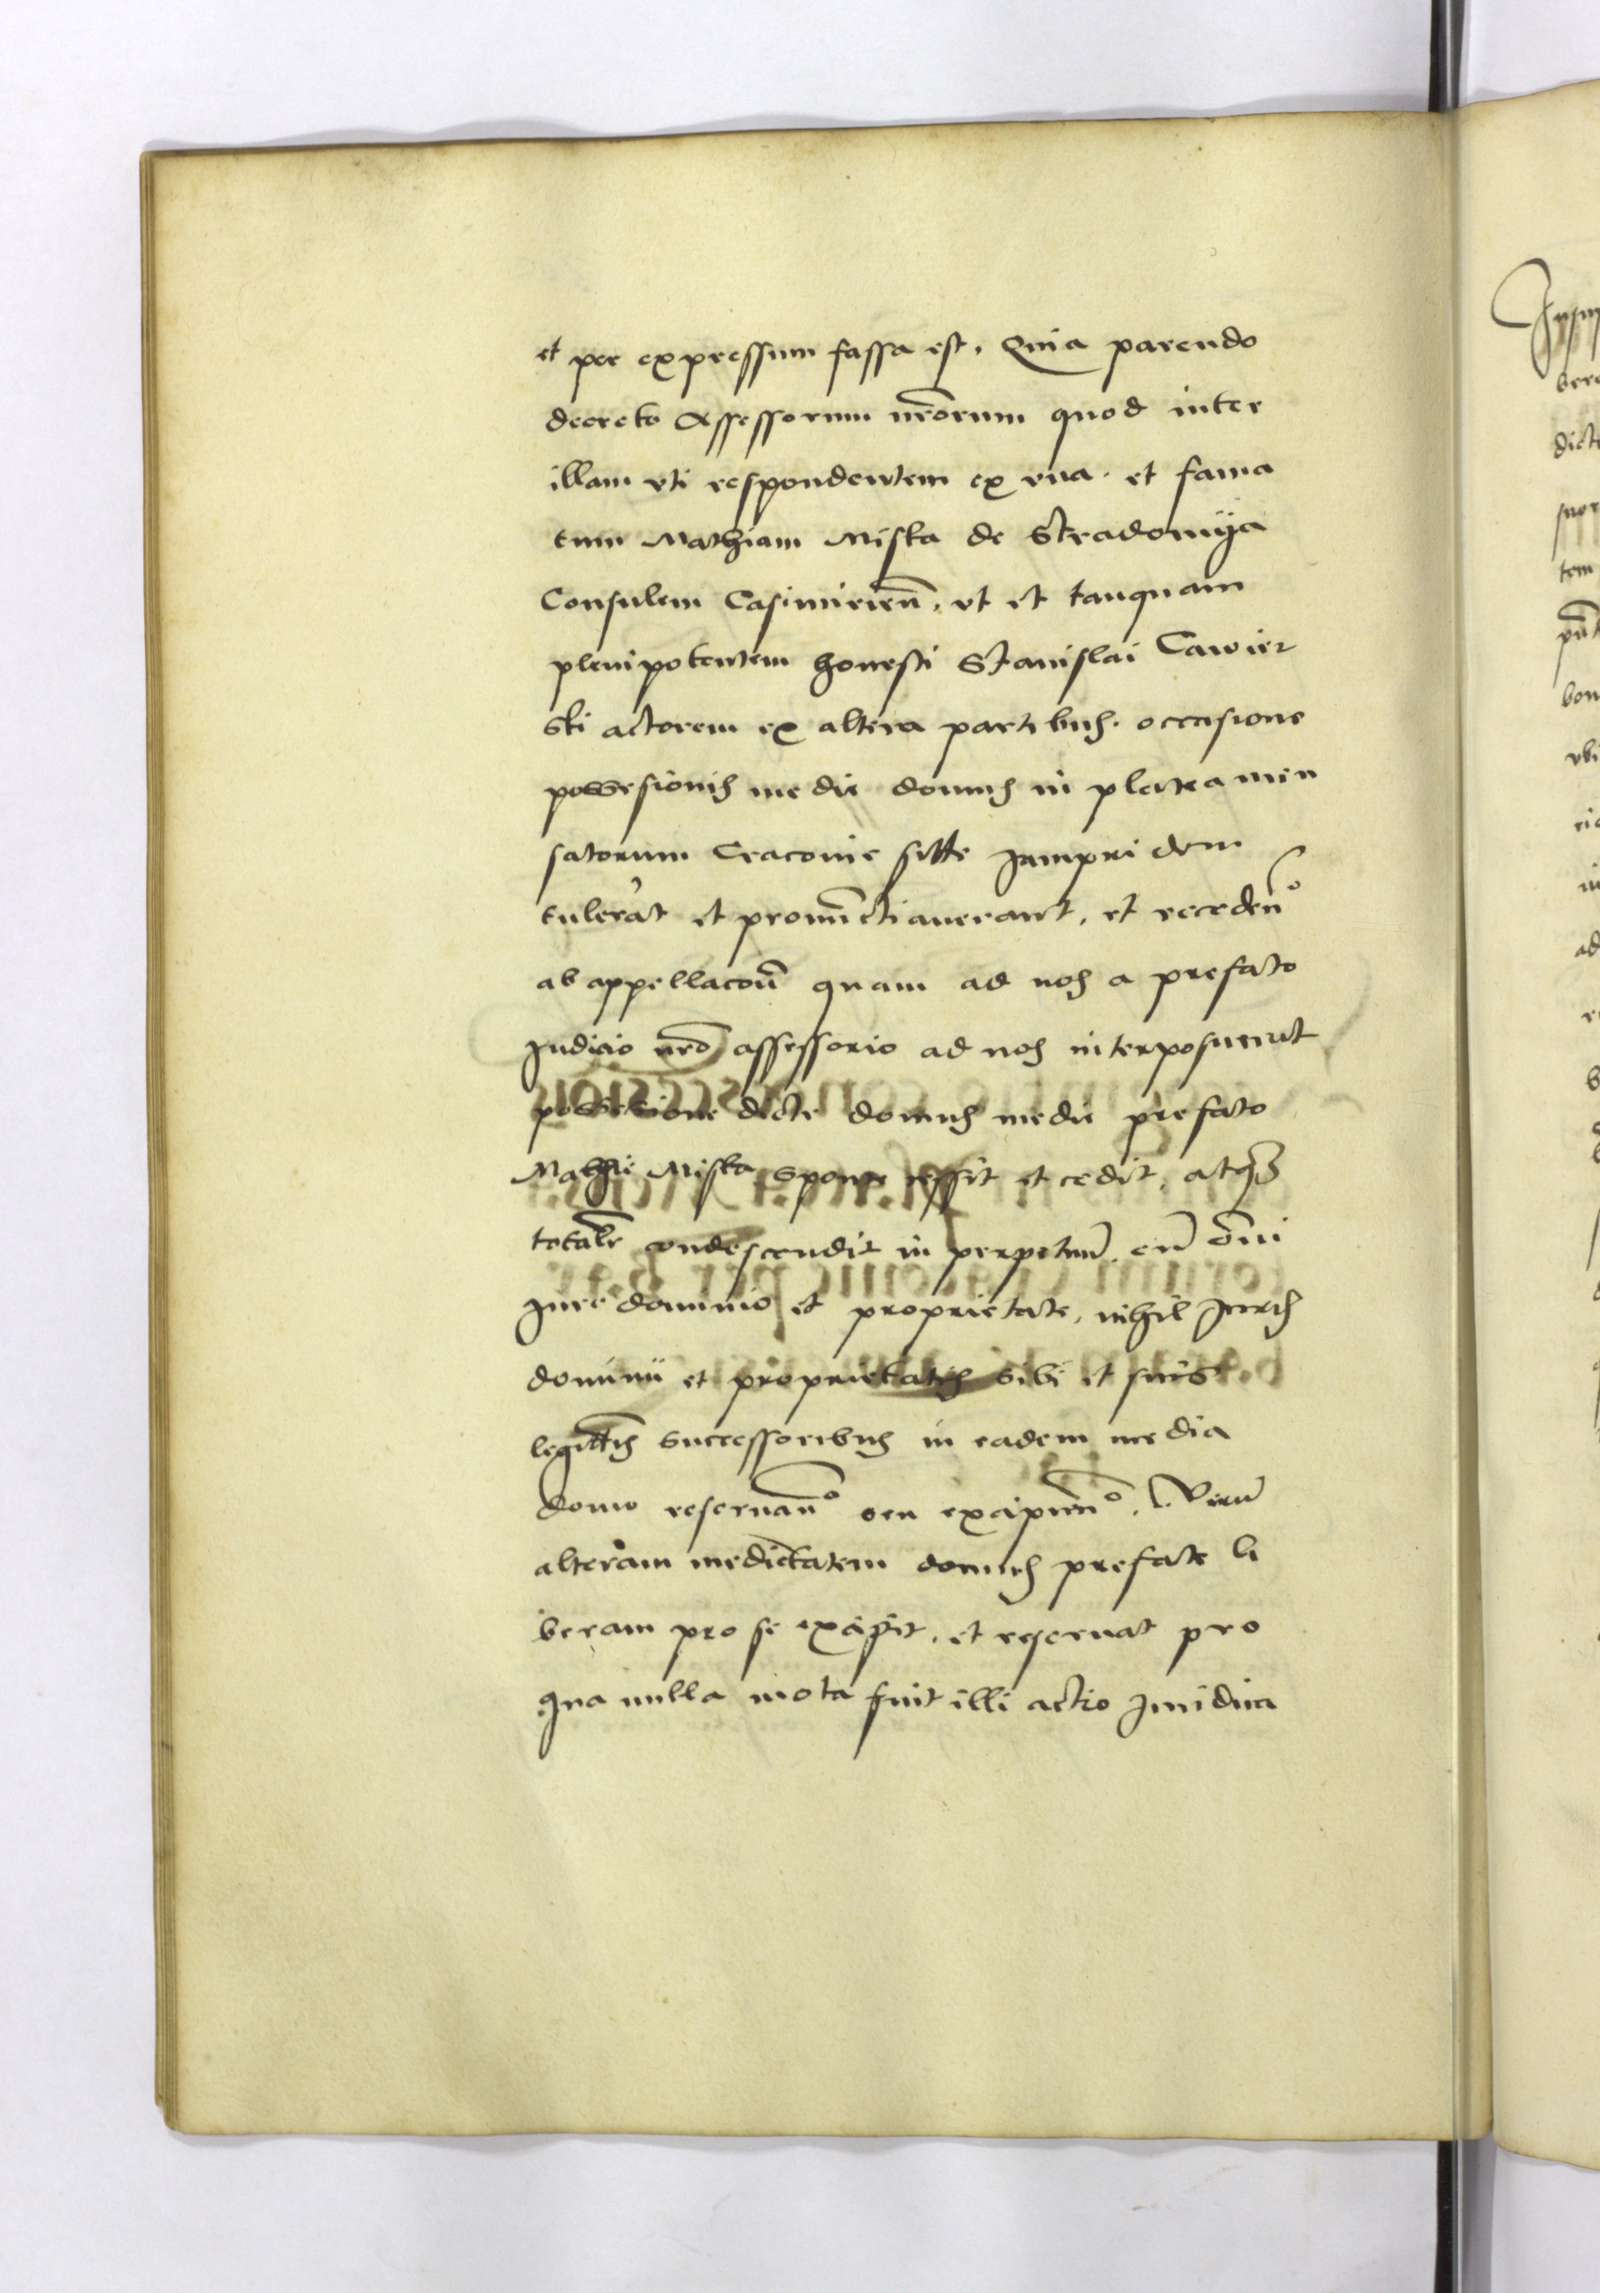 et per expressum fassa est, Quia parendo
decreto Assessorum nr̄orum quod inter
illam vti respondentem ex vna et fama
tum Mathiam Miska de Stradomija
Consulem Casimirien̄, vt et tanquam
plenipotentem honesti Stanislai Cawier
ski actorem ex altera partibus occasione
possesionis medie domus in platea men
satorum Cracovie sitte Jampridem
tulerat et pronūctiauerant, et receden̄º
ab appellacōn̄ quam ad nos a prefato
Judicio nrō assessorio ad nos interposuerat
possessione dicte domus medie prefato
Mathie Miska sponte cessit et cedit, atqȝ
totalr̄ condescendit in perpetuū cū ōmi
Jure dominio et proprietate, nihil Juris
dominii et proprietatis sibi et suis
legitt̄is successoribus in eadem media
domo reseruan̄º seu excipien̄º, Verū
alteram medietatem domus prefate li
beram pro se excipit, et reseruat pro
qua nulla mota fuit illi actio Juridica